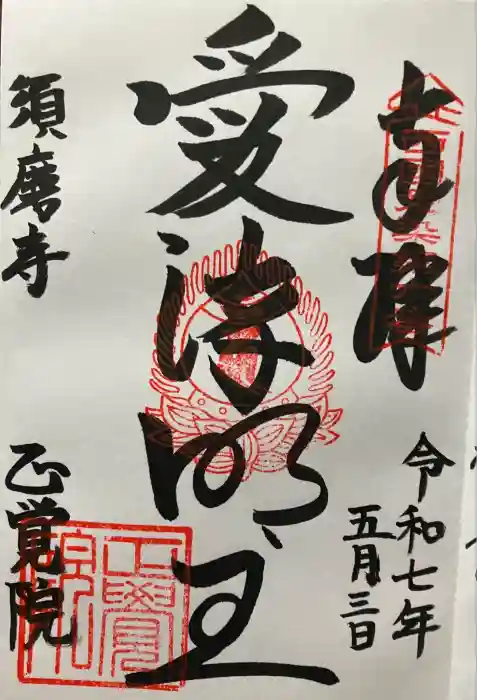 奉拝
令和七年
五月三日
愛染明王
須磨寺
正覚院
正覺院